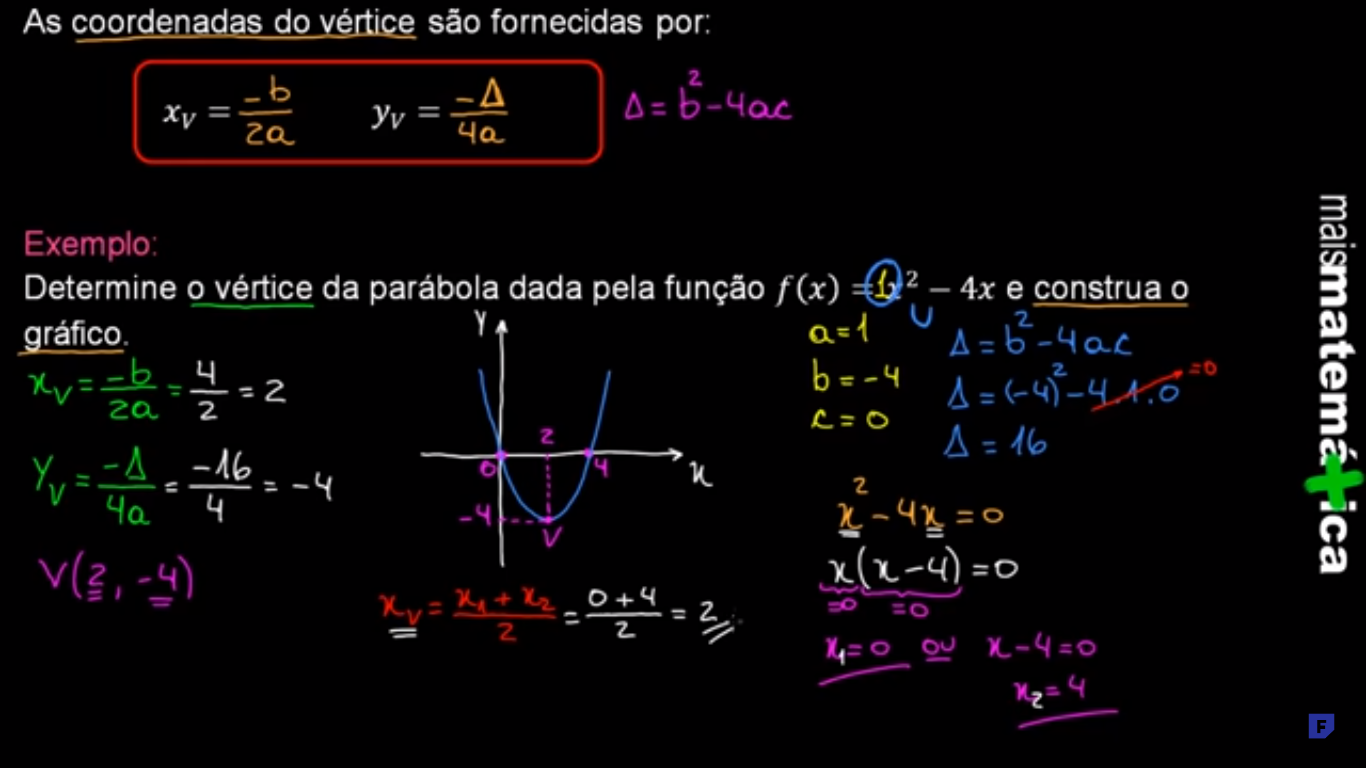 As coordenadas do vértice são fornecidas por:
x_V = -b/2a    y_V = -Δ/4a    Δ = b² - 4ac
Exemplo:
Determine o vértice da parábola dada pela função f(x) = 1x² − 4x e construa o
gráfico.
x_V = -b/2a = 4/2 = 2
y_V = -Δ/4a = -16/4 = -4
V(2, -4)
Y
2
0
4
x
-4
V
x_V = (x₁ + x₂)/2 = (0 + 4)/2 = 2
a = 1
b = -4
c = 0
U
Δ = b² - 4ac
Δ = (-4)² - 4.1.0 = 0
Δ = 16
x² - 4x = 0
x(x - 4) = 0
=0    =0
x₁ = 0 ou x - 4 = 0
x₂ = 4
maismatemática
F